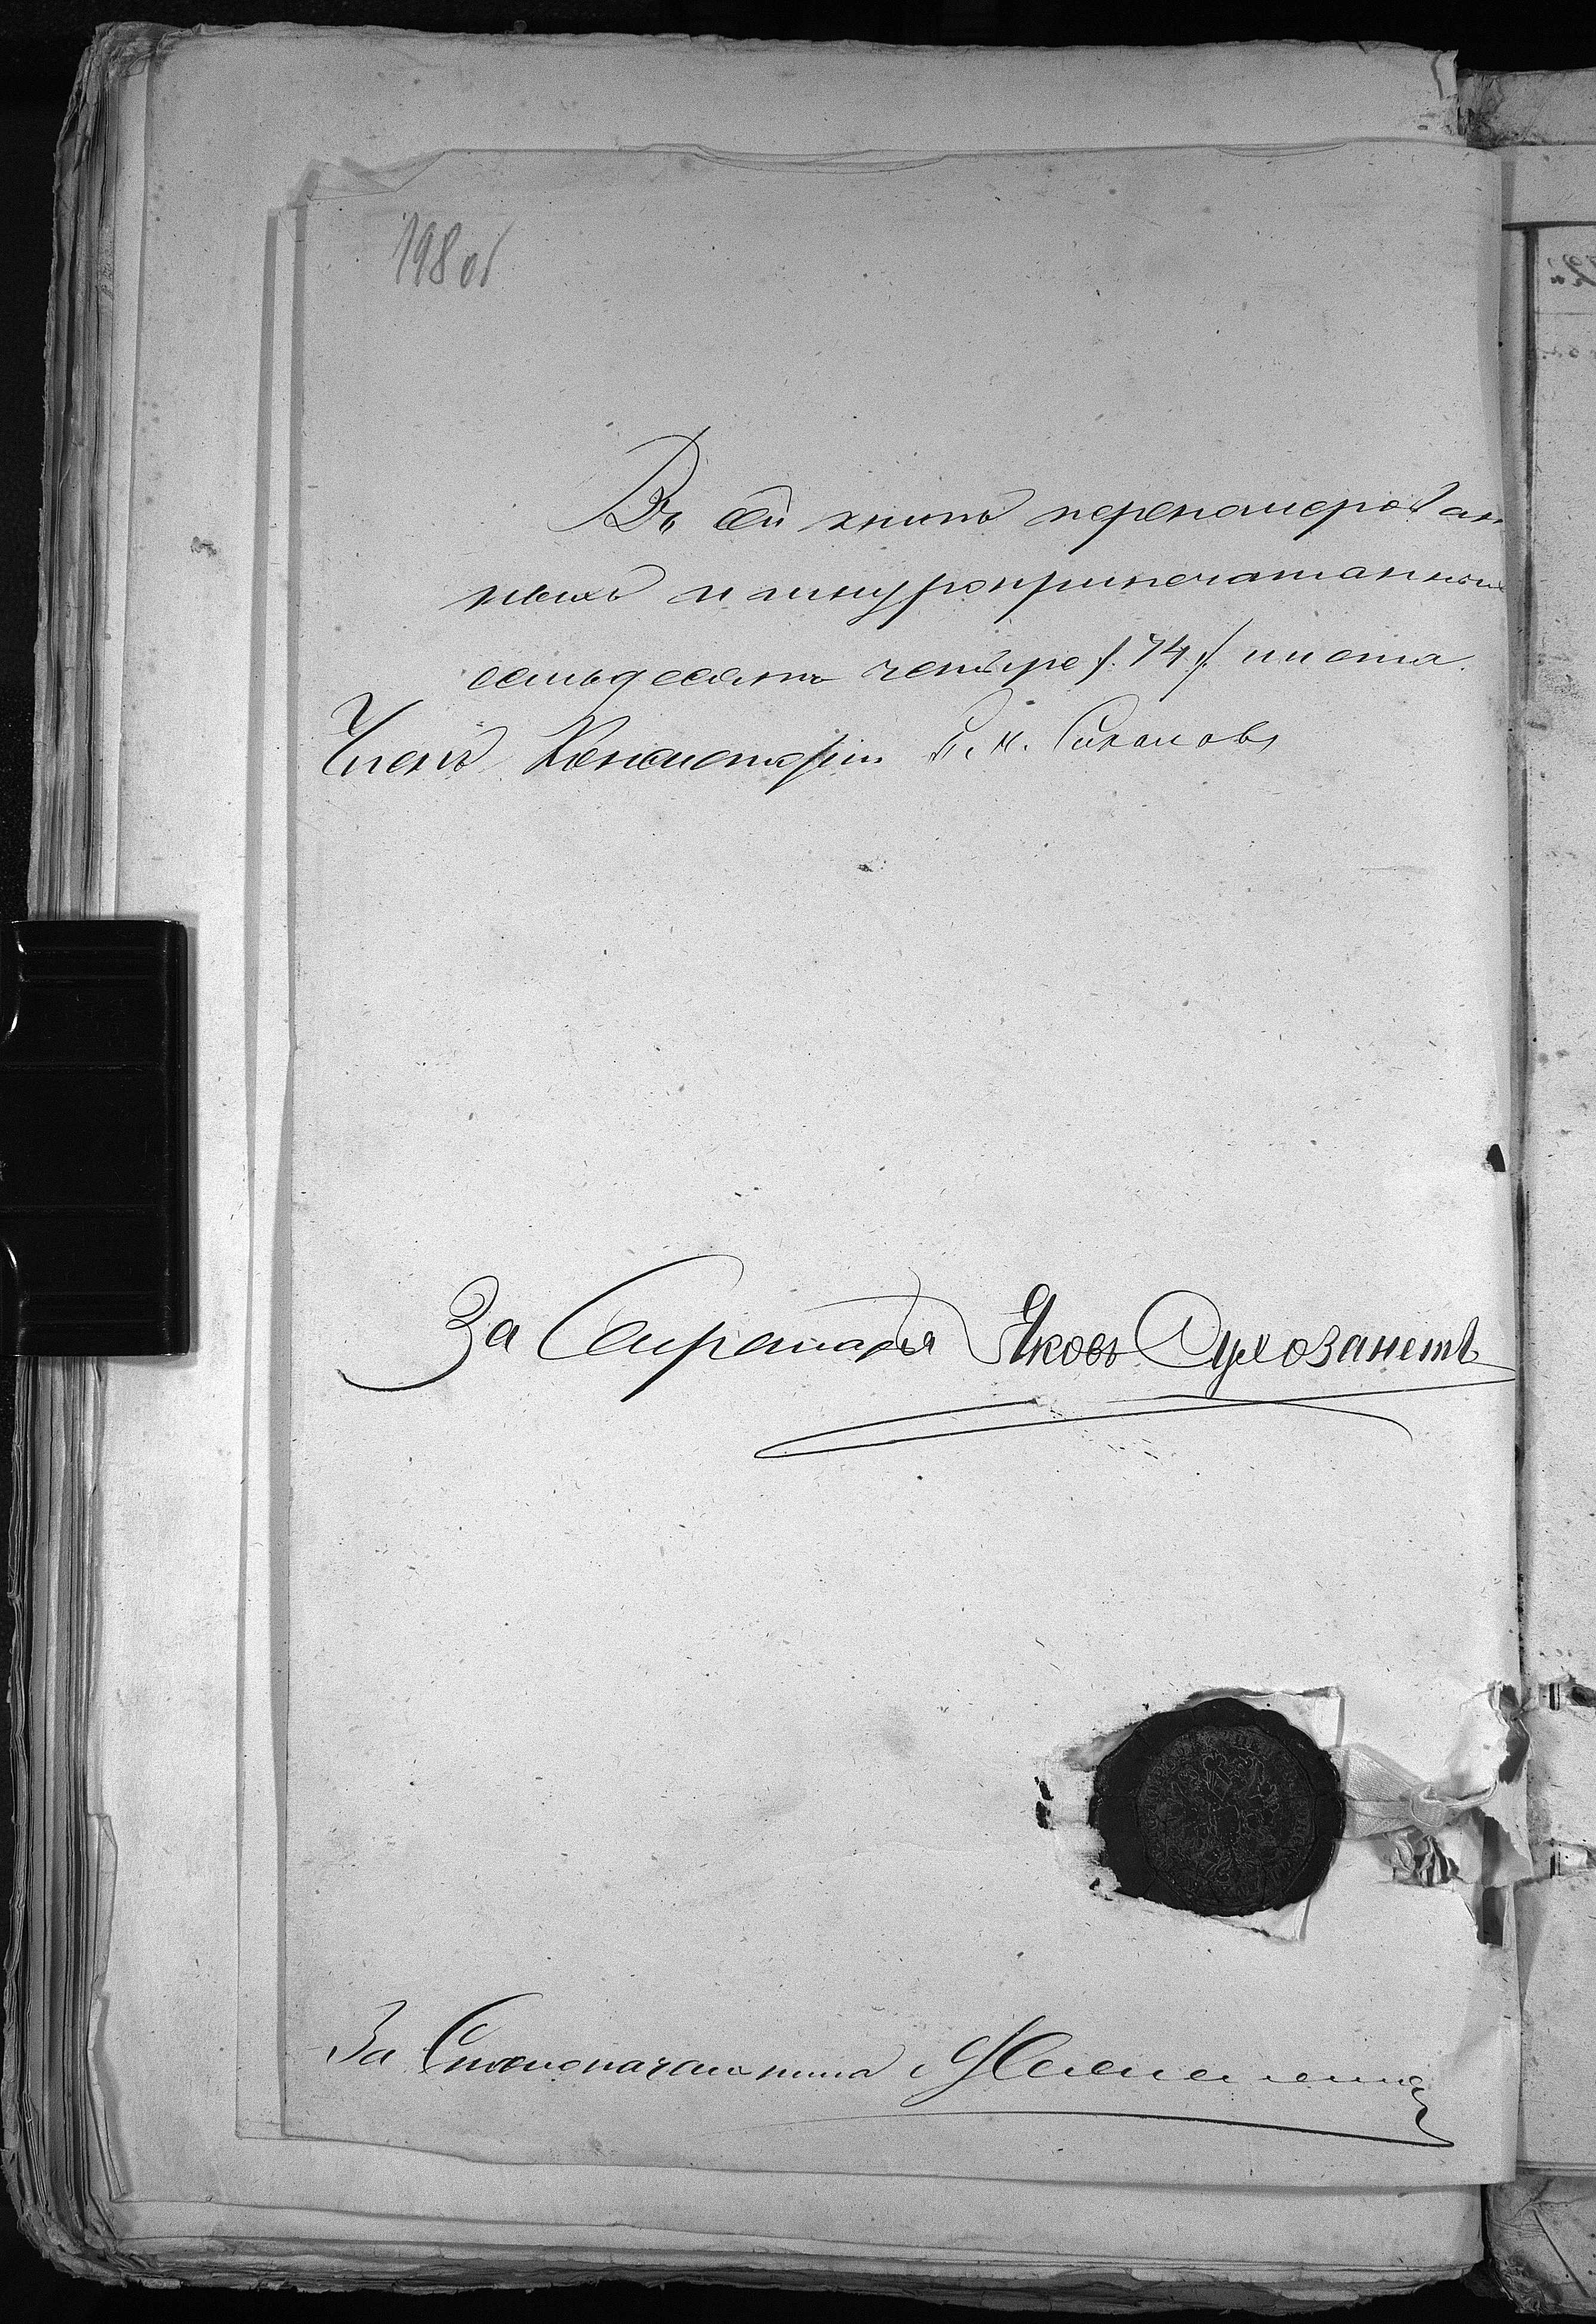 198 об
Въ сей книгѣ переномерован
ныхъ и шнуроприпечатанныхъ
семьдесятъ четыре /.74./ листа.
Членъ Консисторіи
За Секретаря Яковъ Сухозанетъ
За Столоначальника